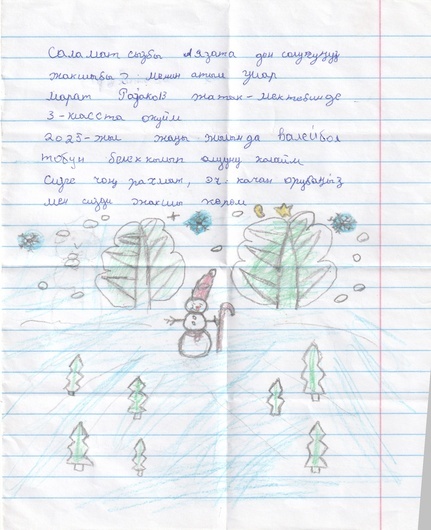 Саламатсызбы Аязата ден соолугуңуз
жакшыбы? менин атым Унар
марат Раззаков жатак-мектебинде
3-класста окуйм
2025-жыл жаңы жылында валейбол
тобун белек кылып алууну каалайм
Сизге чоң рахмат, эч качан оорубаңыз
мен сизди жакшы көрөм